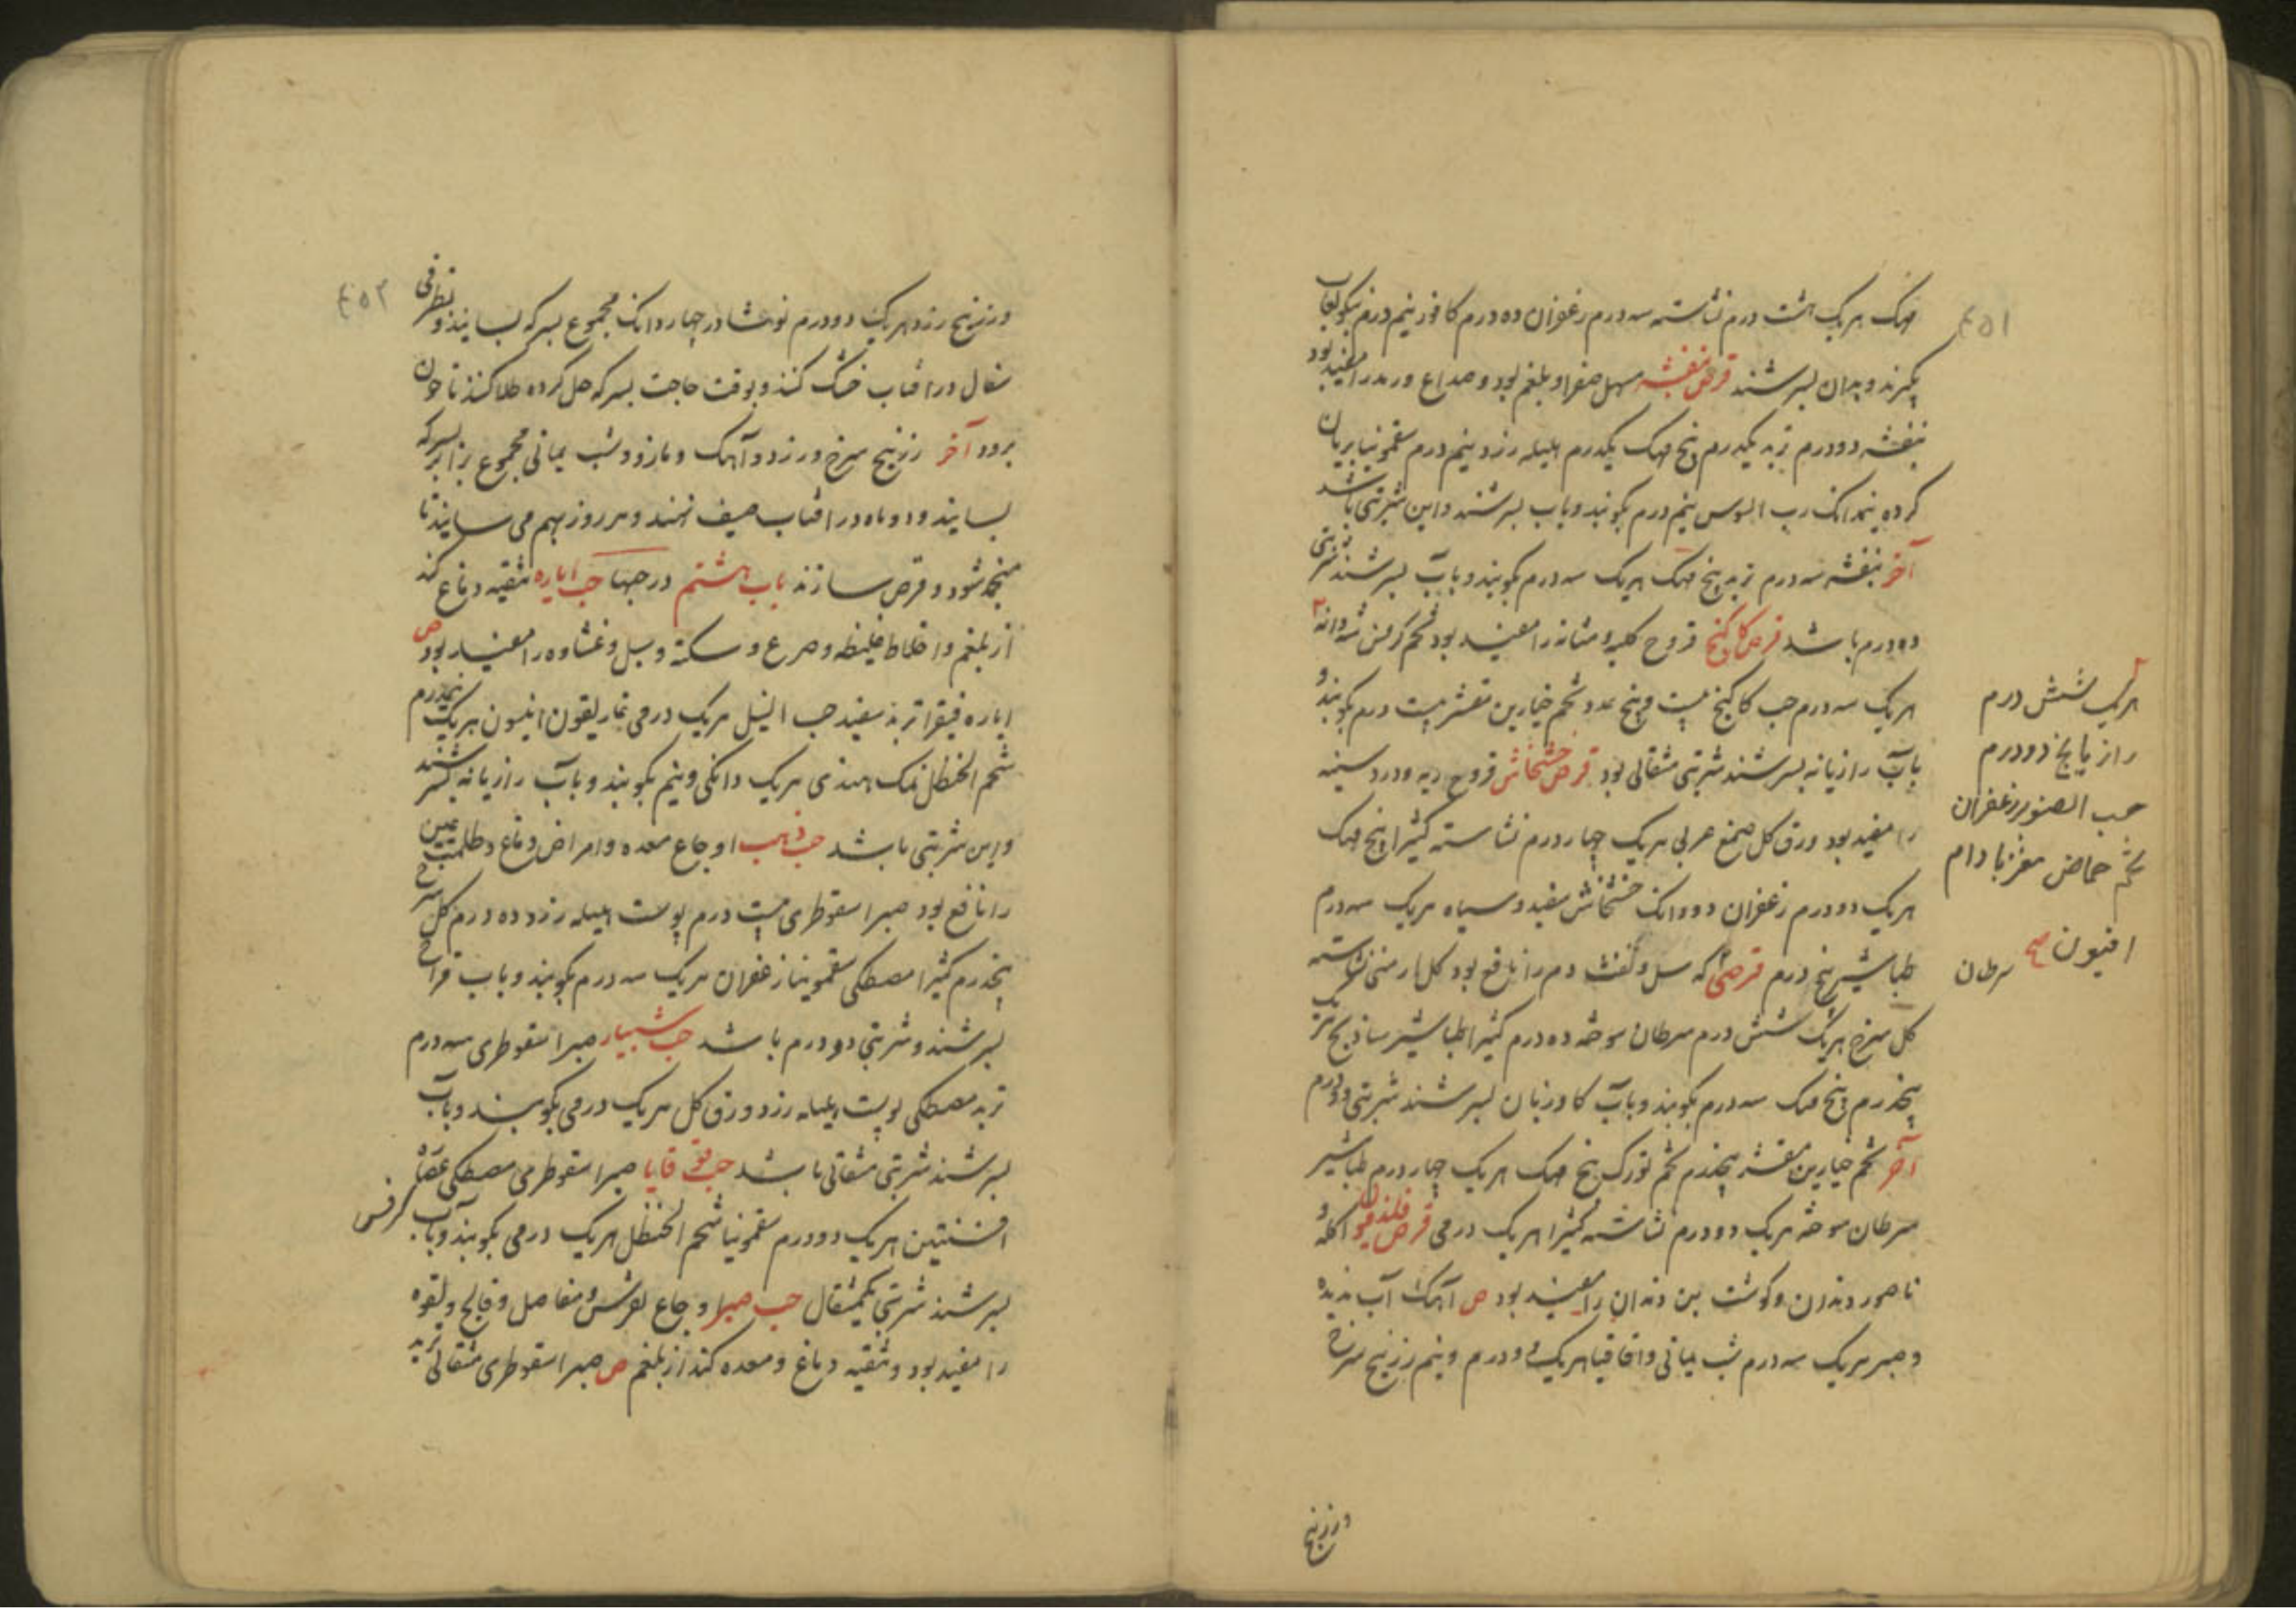 ٤٥١
مهک هریک هشت درم نشاسته سه درم زعفران ده درم کافور نیم درم بکوبند لعاب
بگیرند و بدان بسرشند قرص بنفشه مسهل صفرا و بلغم بود و صداع و رمد را مفید بود
بنفشه دو درم تربد یکدرم بیخ مهک یکدرم هلیله زرد نیم درم سقمونیا بریان
کرده نیمدانک رب السوس نیم درم بکوبند و باب بسرشند و این شربتی باشد
آخر بنفشه سه درم تربد بیخ مهک هریک سه درم بکوبند و بآب بسرشند شربتی
دو درم باشد قرص کاکنج قروح کلیه و مثانه را مفید بود تخم کرفس شهدانه
هریک سه درم حب کاکنج بیست و پنج عدد تخم خیارین مقشر بیست درم بکوبند و
بآب رازیانه بسرشند شربتی مثقالی بود قرص خشخاش قروح ریه و درد سینه
را مفید بود ورق کل صمغ عربی هریک چهار درم نشاسته کثیرا بیخ مهک
هریک دو درم زعفران دو دانک خشخاش سفید و سیاه هریک سه درم
طباشیر پنج درم قرصی که سل و نفث دم را نافع بود کل ارمنی نشاسته
کل سرخ هریک شش درم سرطان سوخته ده درم کثیرا طباشیر ساذج هریک
پنجدرم بیخ مهک سه درم بکوبند و بآب کاوزبان بسرشند شربتی دو درم
آخر تخم خیارین مقشر پنجدرم تخم تورک بیخ مهک هریک چهار درم طباشیر
سرطان سوخته هریک دو درم نشاسته کثیرا هریک درمی قرص فلندفیون اکله و
ناصور دندان و کوشت بن دندان را مفید بود ص آهک آب ندیده
و صبر هریک سه درم شب یمانی و اقاقیا هریک دو درم و نیم زرنیخ سرخ
هریک شش درم
رازیانج دو درم
حب الصنوبر زعفران
تخم حماض مغز بادام
افیون صح سرطان
وزرنیخ
٤٥٢
وزرنیخ زرد هریک دو درم نوشادر چهار دانک مجموع بسرکه بسایند و بظرفی
سفال در افتاب خشک کنند و بوقت حاجت بسرکه حل کرده طلا کنند تا خون
برود آخر زرنیخ سرخ و زرد و آهک و مازو و شب یمانی مجموع برابر بسرکه
بسایند و دو ماه در افتاب صیف نهند و هر روز بهم می سایند تا
منجمد شود و قرص سازند باب هشتم در حبها حب ایاره تنقیه دماغ کند
از بلغم و اخلاط غلیظه و صرع و سکته و سبل و غشاوه را مفید بود ص
ایاره فیقرا تربد سفید حب النیل هریک درمی غاریقون انیسون هریک نیمدرم
شحم الحنظل نمک هندی هریک دانکی و نیم بکوبند و بآب رازیانه بسرشند
و این شربتی باشد حب ذهب اوجاع معده و امراض دماغ و ظلمت عین
را نافع بود صبر اسقوطری بیست درم پوست هلیله زرد ده درم کل سرخ
پنجدرم کثیرا مصطکی سقمونیا زعفران هریک سه درم بکوبند و باب قراح
بسرشند و شربتی دو درم باشد حب شبیار صبر اسقوطری سه درم
تربد مصطکی پوست هلیله زرد ورق کل هریک درمی بکوبند و بآب
بسرشند شربتی مثقالی باشد حب قوقایا صبر اسقوطری مصطکی عصاره
افسنتین هریک دو درم سقمونیا شحم الحنظل هریک درمی بکوبند و بآب کرفس
بسرشند شربتی یکمثقال حب صبر اوجاع نقرس و مفاصل و فالج و لقوه
را مفید بود و تنقیه دماغ و معده کند از بلغم ص صبر اسقوطری مثقالی تربد